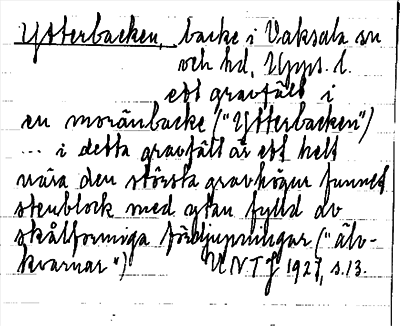 Ytterbacken, backe i Vaksala sn
och hd, Upps. l.
ett gravfält i
en moränbacke ("Ytterbacken")
... i detta gravfält är ett helt
nära den största gravhögen funnet
stenblock med ytan fylld av
skålformiga fördjupningar ("älv-
kvarnar") UNT 1927, s. 13.